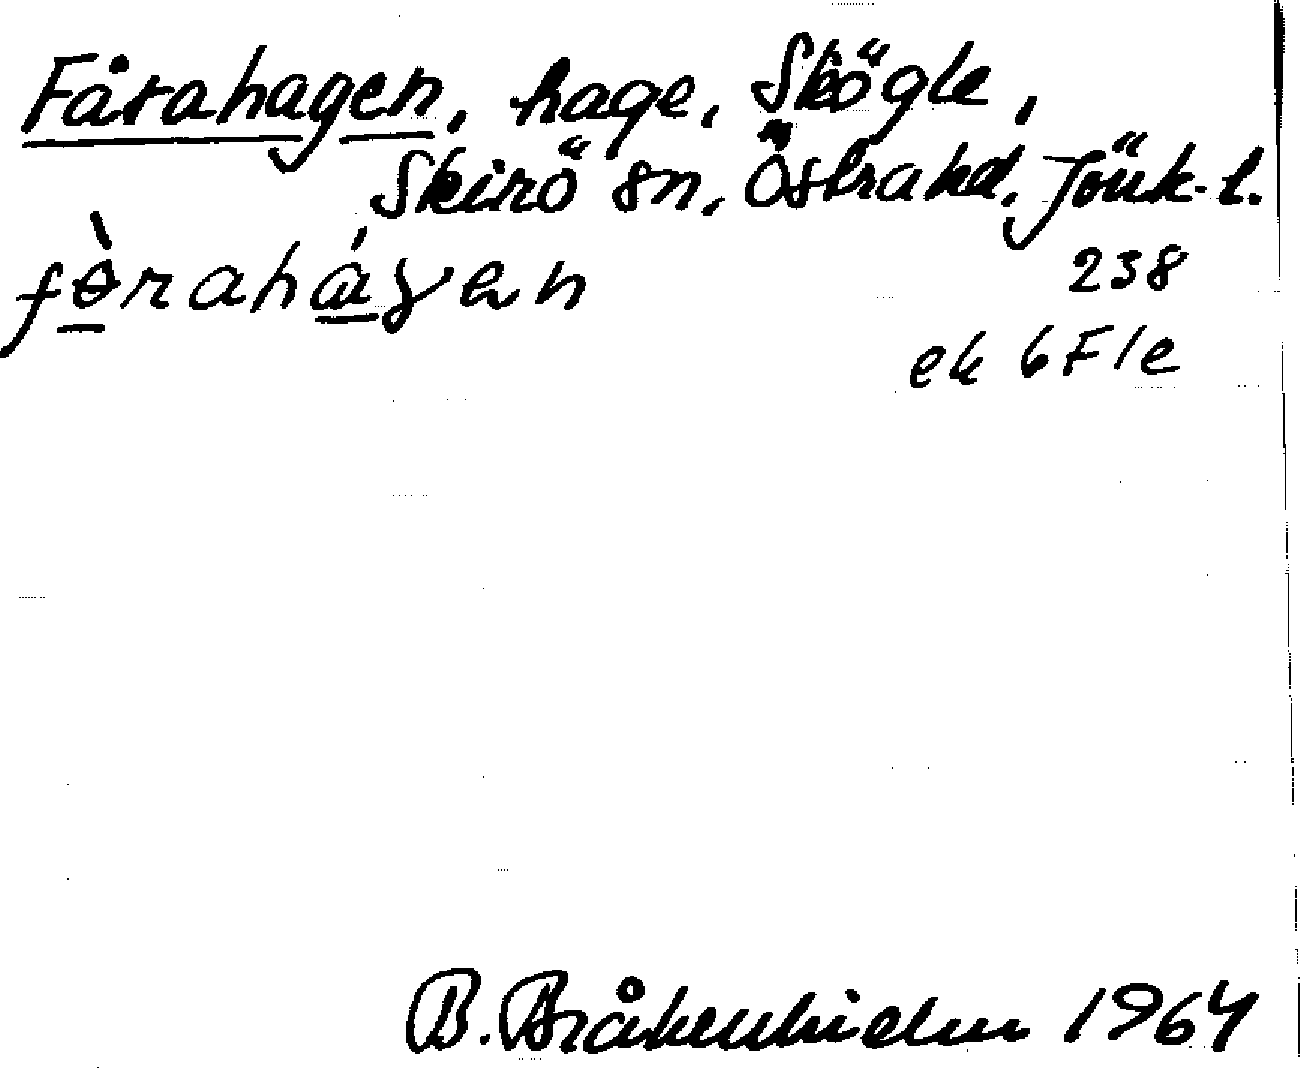 Fårahagen, hage, Skögle,
Skirö sn, Östra hd, Jönk. l.
fɵ̀rahɑ́gen
238
ek 6F1e
B. Bråkenhielm 1964